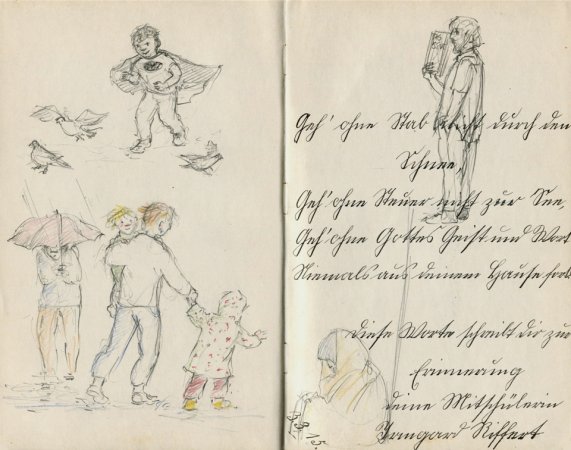 Geh' ohne Stab nicht durch den
Schnee,
Geh' ohne Steuer nicht zur See,
Geh' ohne Gottes Geist und Wort
Niemals aus deinem Hause fort.
Diese Worte schreibt dir zur
Erinnerung
deine Mitschülerin
Irmgard Siffert